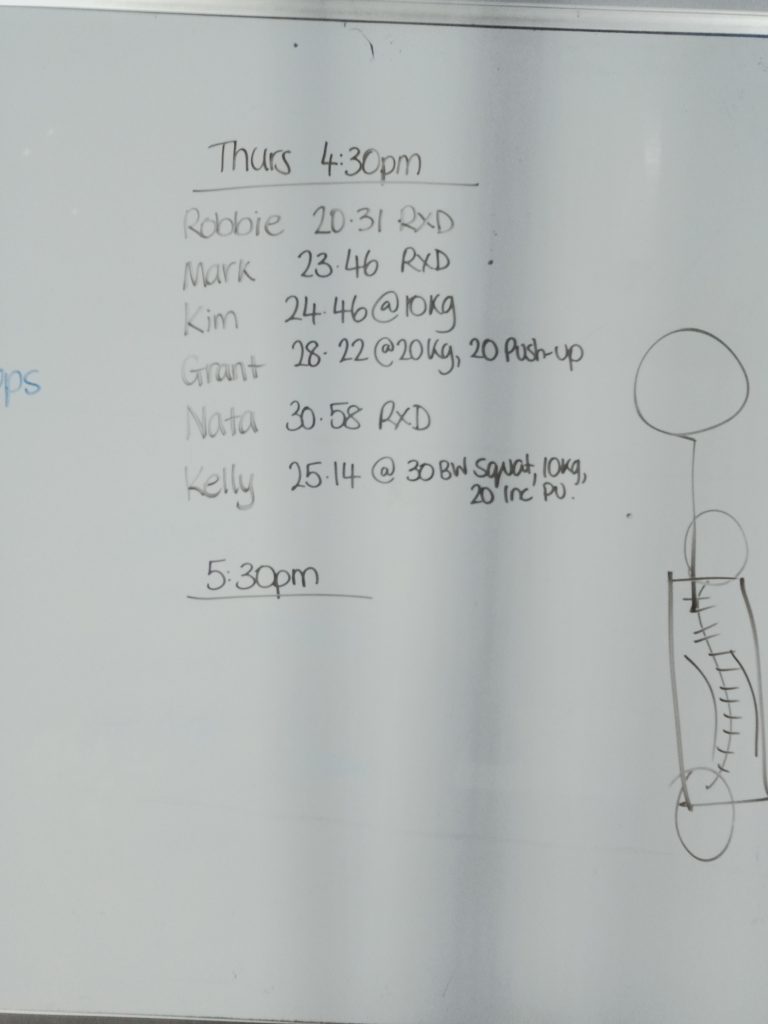 Thurs 4:30pm
Robbie 20.31 RXD
Mark 23.46 RXD
Kim 24.46 @10kg
Grant 28.22 @20kg, 20 Push-up
Nata 30.58 RXD
Kelly 25.14 @ 30 BW Squat, 10kg,
20 Inc PU.
5:30pm